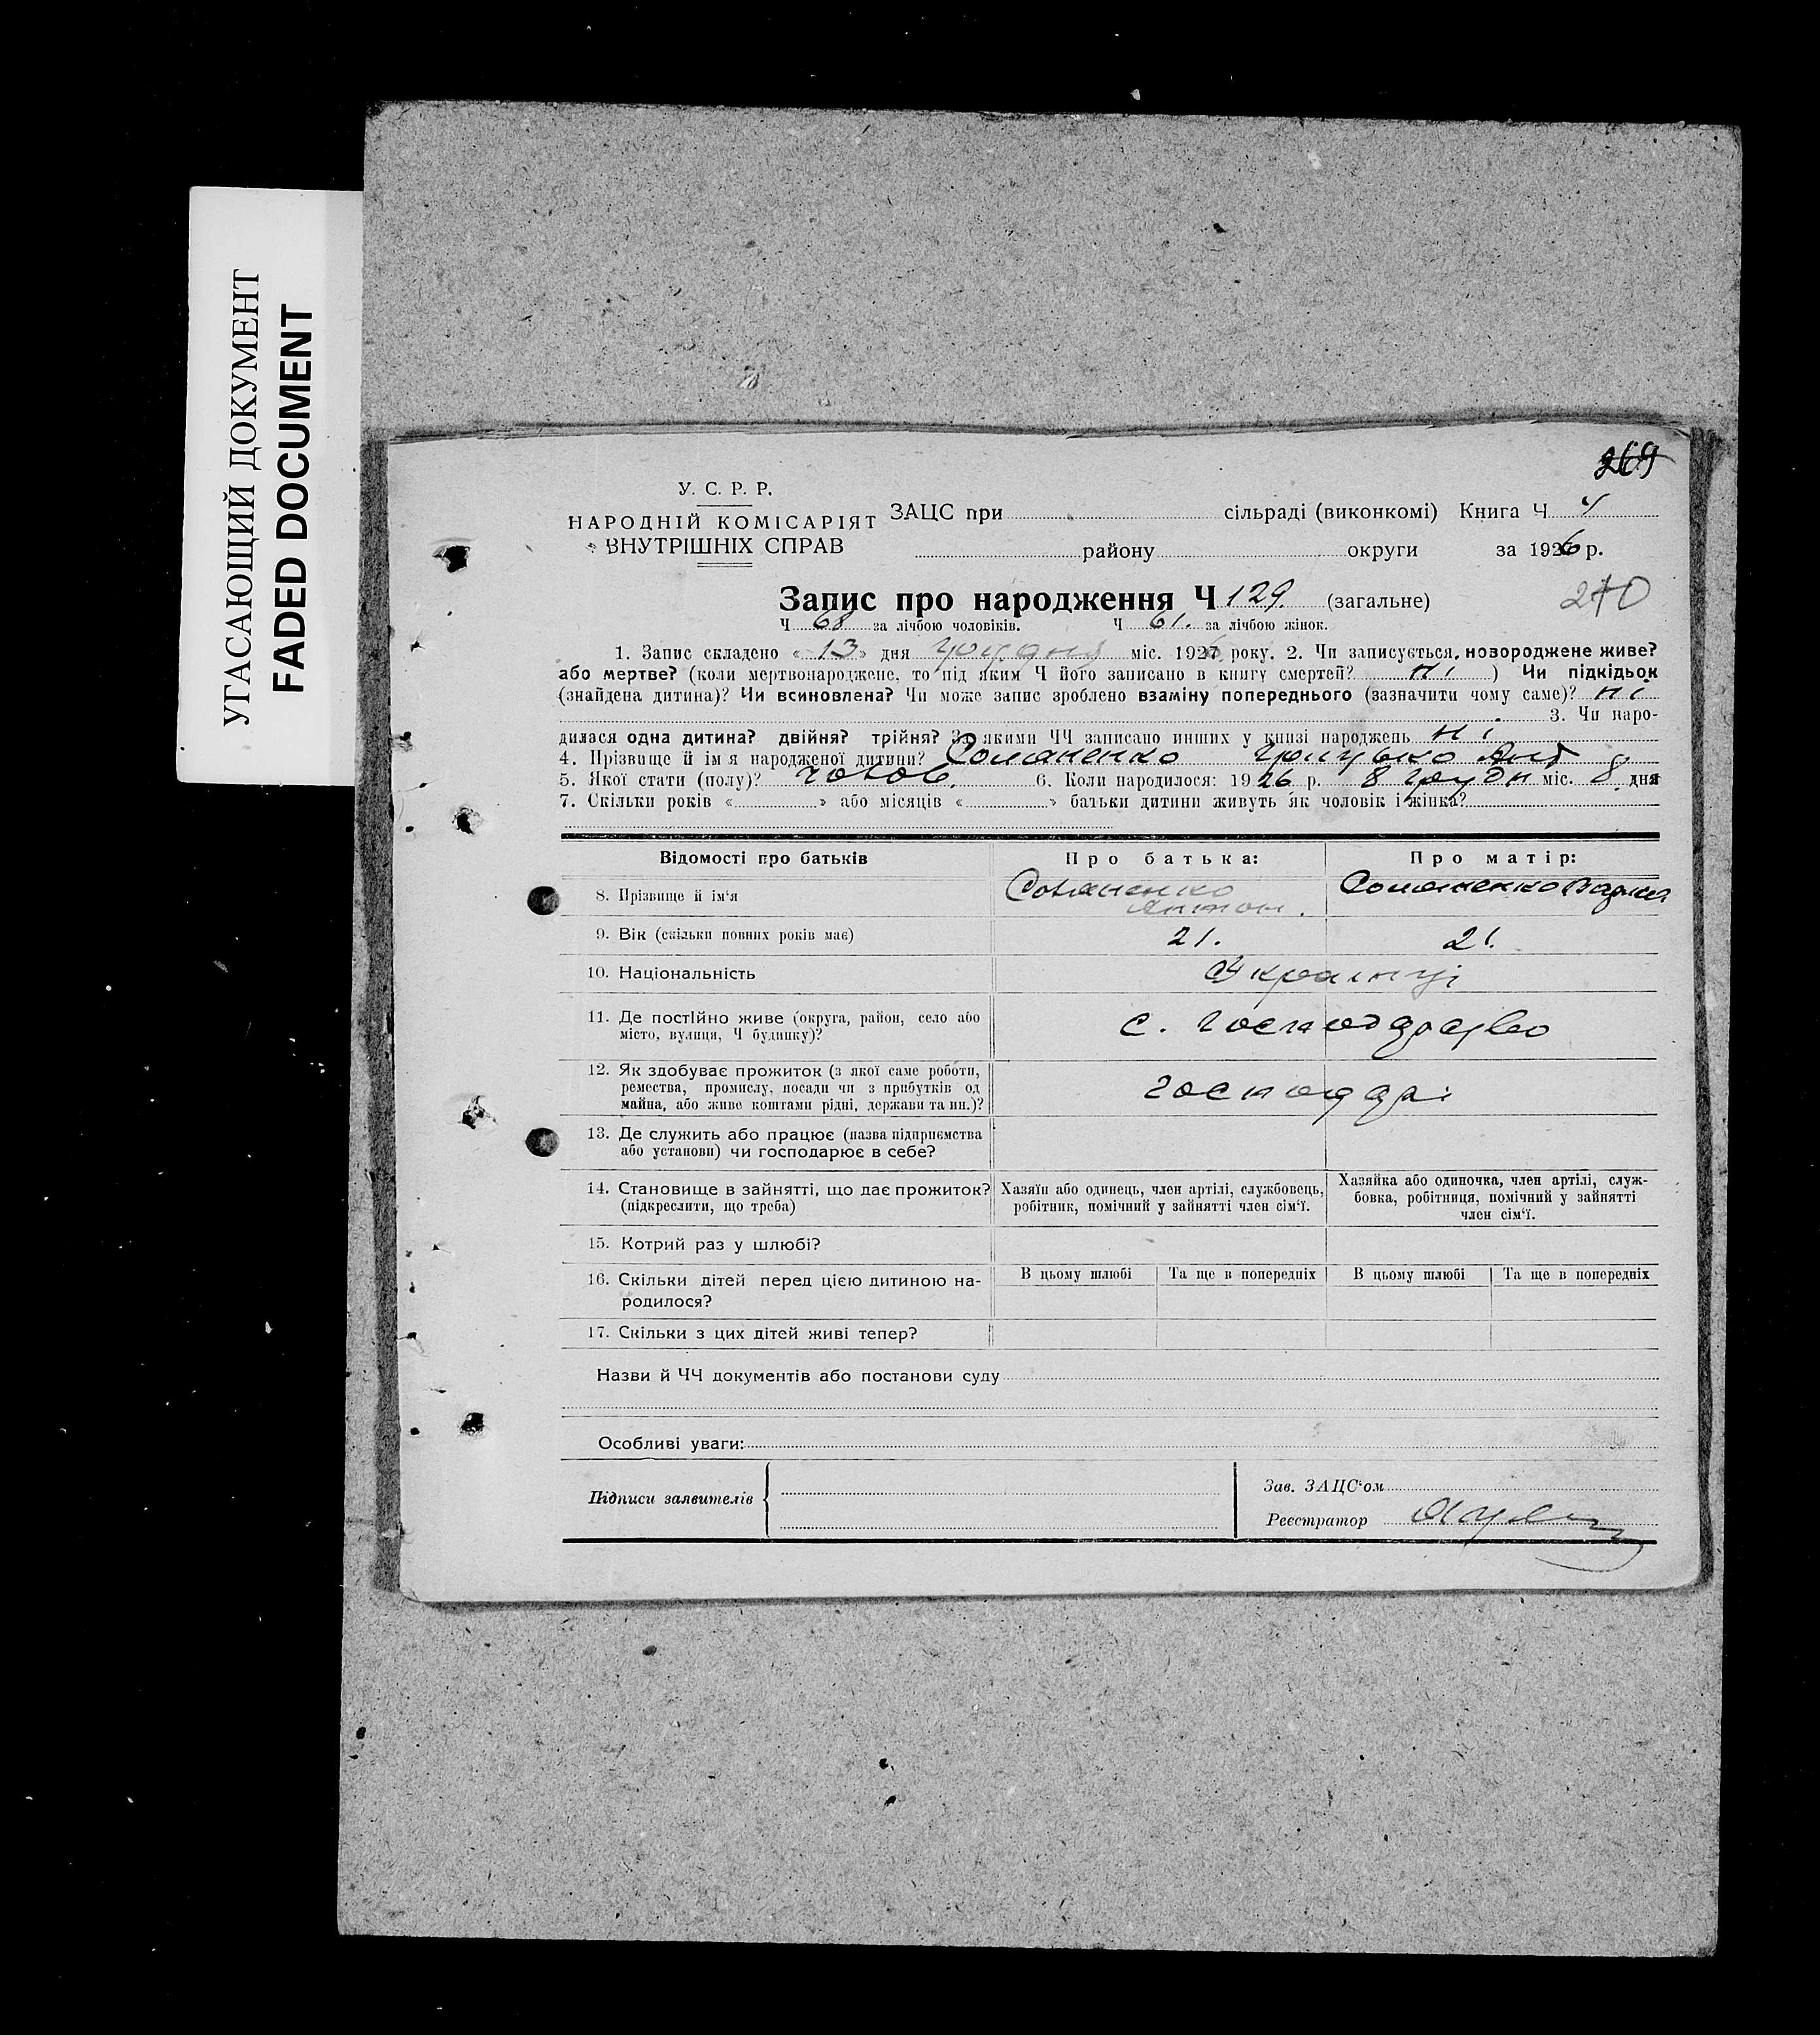 УГАСАЮЩИЙ ДОКУМЕНТ
FADED DOCUMENT
269
У. С. Р. Р.
НАРОДНІЙ КОМІСАРІЯТ
ВНУТРІШНІХ СПРАВ
ЗАЦС при сільраді (виконкомі) Книга Ч 4
району округи за 1926 р.
Запис про народження Ч 129. (загальне)
270
Ч 68 за лічбою чоловіків. Ч 61. за лічбою жінок.
1. Запис складено « 13 » дня грудня міс. 1926 року. 2. Чи записується, новороджене живе?
або мертве? (коли мертвонароджене, то під яким Ч його записано в книгу смертей? ні ) Чи підкідьок
(знайдена дитина)? Чи всиновлена? Чи може запис зроблено взаміну попереднього (зазначити чому саме)? ні
3. Чи наро-
дилася одна дитина? двійня? трійня? За якими ЧЧ записано инших у книзі народжень ні
4. Прізвище й ім'я народженої дитини? Соманенко Грицько Ант
5. Якої стати (полу)? чолов. 6. Коли народилося: 1926 р. 8 грудн міс. 8 дня
7. Скільки років « » або місяців « » батьки дитини живуть як чоловік і жінка?
Відомості про батьків Про батька: Про матір:
8. Прізвище й ім'я Соманенко Антон. Соманенко
9. Вік (скільки повних років має) 21. 21.
10. Національність Українці
11. Де постійно живе (округа, район, село або
місто, вулиця, Ч будинку)? с. Господарство
12. Як здобуває прожиток (з якої саме роботи,
ремества, промислу, посади чи з прибутків од
майна, або живе коштами рідні, держави та ин.)? господарі
13. Де служить або працює (назва підприємства
або установи) чи господарює в себе?
14. Становище в зайнятті, що дає прожиток?
(підкреслити, що треба)
Хазяїн або одинець, член артілі, службовець,
робітник, помічний у зайнятті член сім'ї.
Хазяйка або одиночка, член артілі, служ-
бовка, робітниця, помічний у зайнятті
член сім'ї.
15. Котрий раз у шлюбі?
16. Скільки дітей перед цією дитиною на-
родилося?
В цьому шлюбі Та ще в попередніх В цьому шлюбі Та ще в попередніх
17. Скільки з цих дітей живі тепер?
Назви й ЧЧ документів або постанови суду
Особливі уваги:
Підписи заявителів
Зав. ЗАЦС'ом
Реєстратор